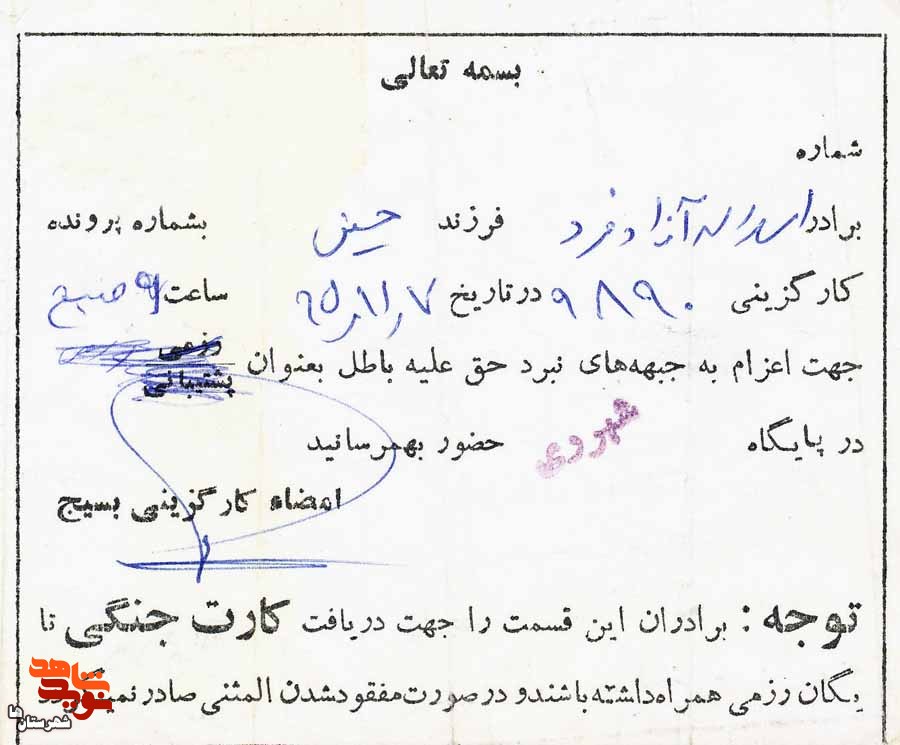 بسمه تعالی
شماره
برادر اسداله آزاد فرد فرزند حسین بشماره پرونده
کارگزینی ۹۸۹۰ در تاریخ ۷/۱۱/۶۵ ساعت ۹ صبح
جهت اعزام به جبهه‌های نبرد حق علیه باطل بعنوان رزمی پشتیبانی
در پایگاه حضور بهمرسانید
امضاء کارگزینی بسیج
توجه : برادران این قسمت را جهت دریافت کارت جنگی تا
یگان رزمی همراه داشته باشند و در صورت مفقود شدن المثنی صادر نمیگردد
نوید شاهد
شهرستان‌ها